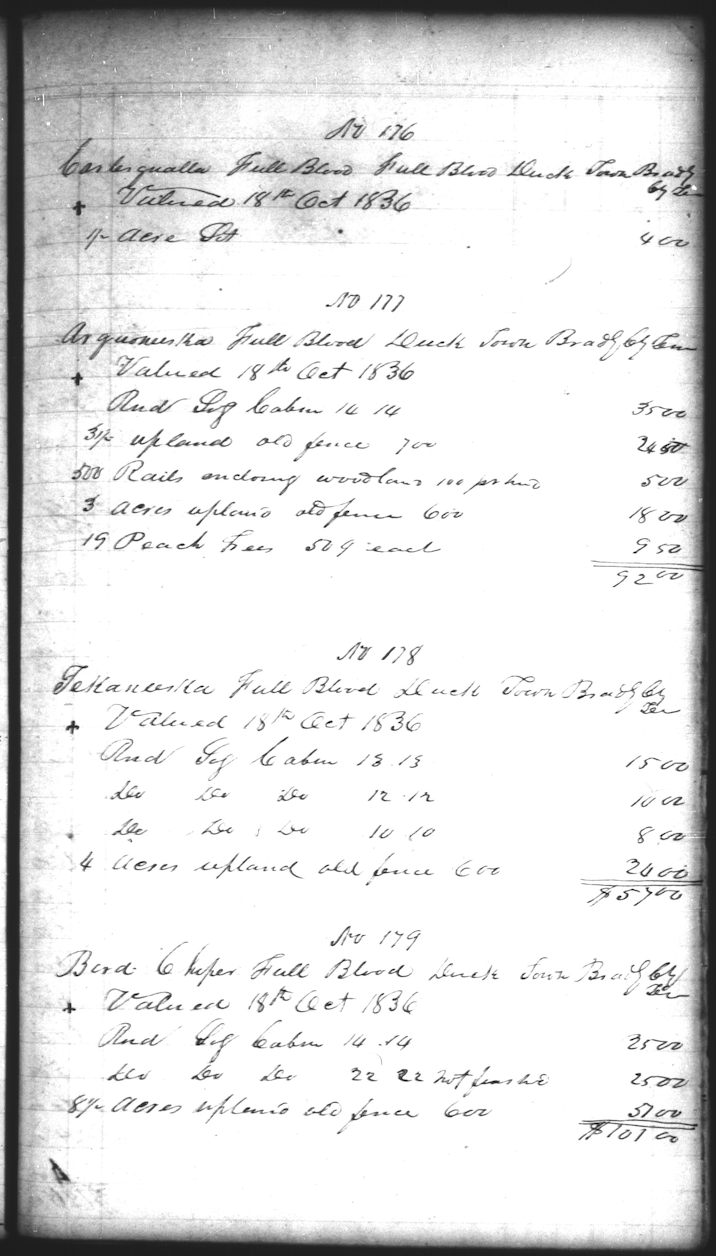 No 176
Full Blood Full Blood Duck Town Bradly
Cty Ten
+ Valued 18th Oct 1836
½ Acre Lot 400
No 177
Arquoneeska Full Blood Duck Town Bradly Cty Tenn
+ Valued 18th Oct 1836
Rnd Log Cabin 14 14 3500
3½ upland old fence 700 2450
500 Rails enclosing woodland 100 pr hund 500
3 acres upland old fence 600 1800
19 Peach Trees 50 ¢ each 950
9200
No 178
Tekaneeska Full Blood Duck Town Bradly Cty
Ten
+ Valued 18th Oct 1836
Rnd Log Cabin 13 13 1500
Do Do Do 12 12 1000
Do Do Do 10 10 800
4 Acres upland old fence 600 2400
$5700
No 179
Bird Full Blood Duck Town Bradly Cty
Ten
+ Valued 18th Oct 1836
Rnd Log Cabin 14 14 2500
Do Do Do 22 22 not finished 2500
8½ Acres upland old fence 600 5100
$10100